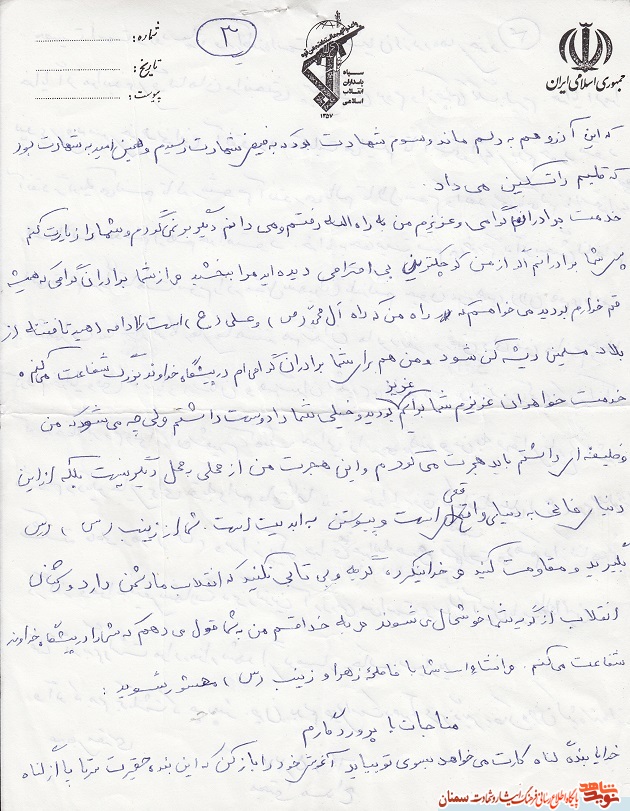 شماره:
۳
تاریخ:
پیوست:
سپاه
پاسداران
انقلاب
اسلامی
۱۳۵۷
جمهوری اسلامی ایران
که این آرزو هم به دلم ماند و سوم شهادت بود که به فیض شهادت رسیدم و همین امید به شهادت بود
که قلبم را تسکین می داد.
خدمت برادران گرامی و عزیزم من به راه الله رفتم و می دانم دیگر بر نمی گردم و شما را زیارت کنم
پس شما برادرانم اگر از من کوچکترین بی احترامی دیده اید مرا ببخشید و از شما برادران گرامی که همیشه
غم خوارم بودید می خواهم که راه من که راه آل محمد (ص) و علی (ع) است ادامه دهید تا فتنه از
بلاد مسلمین ریشه کن شود و من هم برای شما برادران گرامی ام در پیشگاه خداوند بزرگ شفاعت می کنم
خدمت خواهران عزیزم شما برایم عزیز بودید و خیلی شما را دوست داشتم ولی چه می شود که من
وظیفه ای داشتم باید هجرت می کردم و این هجرت من از محلی به محل دیگر نیست بلکه از این
دنیای فانی به دنیای واقعی است و پیوستن به ابدیت است. شما از زینب (س) درس
بگیرید و مقاومت کنید و خدا نکرده گریه و بی تابی نکنید که انقلاب ما دشمن دارد و دشمنان
انقلاب از گریه شما خوشحال می شوند و به خدا قسم من به شما قول می دهم که شما را در پیشگاه خداوند
شفاعت می کنم. و انشاءاله شما با فاطمه زهرا و زینب (س) محشور شوید:
مناجات با پروردگارم
خدایا بنده گناه کارت می خواهد بسوی تو بیاید آغوش خود را باز کن که این بنده حقیرت سرتا پا از گناه
نوید شاهد
پایگاه اطلاع رسانی فرهنگ ایثار و شهادت سمنان